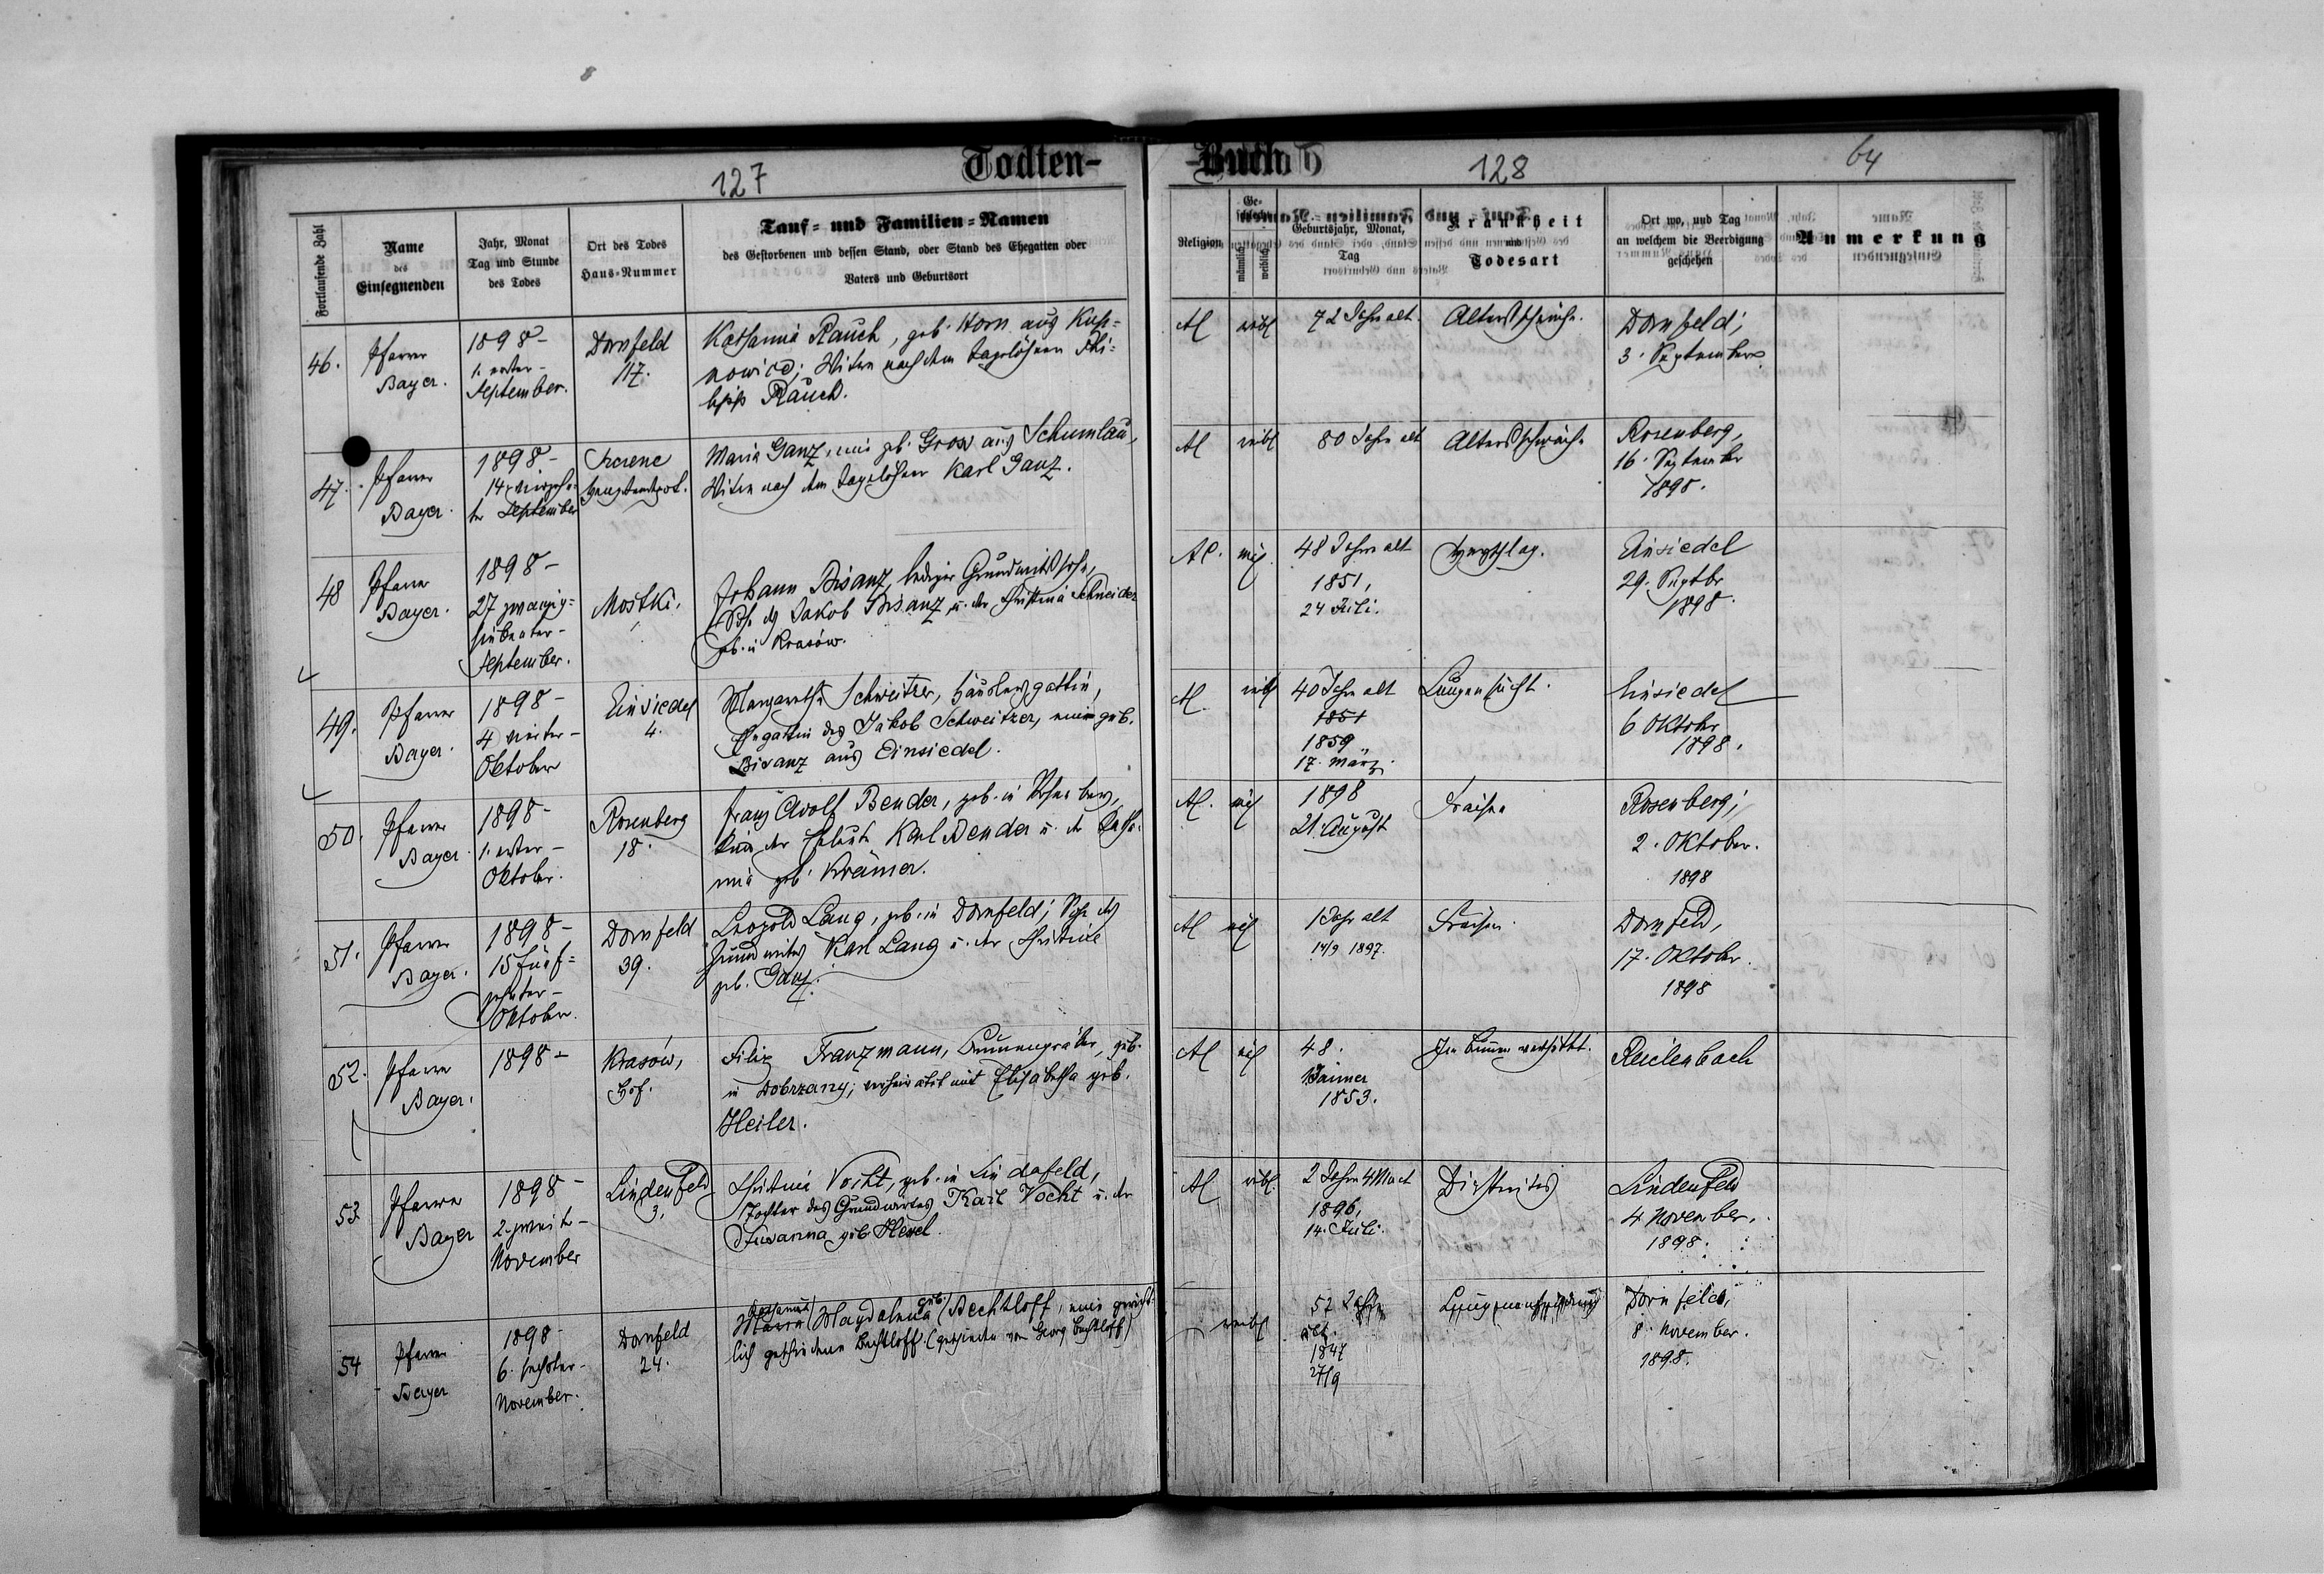 Todten-
Buch
127
128
64
Fortlaufende Zahl
Name
des
Einsegnenden
Jahr, Monat
Tag und Stunde
des Todes
Ort des Todes
Haus-Nummer
Tauf- und Familien-Namen
des Gestorbenen und dessen Stand, oder Stand des Ehegatten oder
Vaters und Geburtsort
Religion
Ge-
männlich
weiblich
Geburtsjahr, Monat,
Tag
Krankheit
und
Todesart
Ort wo, und Tag
an welchem die Beerdigung
geschehen
Anmerkung
46.
Pfarrer
Bayer.
1898-
1. erster-
September.
Dornfeld
117.
Katharina Rauch, geb. Horn aus
Witwe nach dem Taglöhner Phi-
lipp Rauch.
Al
weibl
72 Jahr alt.
Altersschwäche.
Dornfeld;
3. September
47.
Pfarrer
Bayer.
1898-
14 vierzehn-
ter September
Maria Ganz, geb. Gross aus Schumlau,
Witwe nach dem Taglöhner Karl Ganz.
Al
weibl
80 Jahr alt
Altersschwäche
Rosenberg,
16. September
1898.
48
Pfarrer
Bayer.
1898-
27 zwanzig-
siebenter-
September.
Mostki.
Johann Bisanz, lediger Grundwirthssohn,
Sohn des Jakob Bisanz u. der Christina Schneider
geb. in Krasów.
Al.
48 Jahre alt
1851,
24 Juli.
Einsiedel
29. Septbr
1898.
49.
Pfarrer
Bayer.
1898-
4 vierter-
Oktober
Einsiedel
4.
Margaretha Schweitzer, Häuslersgattin,
Ehegattin des Jakob Schweitzer, geb.
Bisanz aus Einsiedel.
Al.
weibl
40 Jahre alt
1851
1859
17. März.
Lungensucht.
Einsiedel
6 Oktober
1898.
50.
Pfarrer
Bayer.
1898-
1. erster-
Oktober.
Rosenberg
18.
Franz Adolf Bender, geb. in
Kind der Eheleute Karl Bender u. der Katha-
rina geb. Krämer.
Al.
1898
21. August
Fraisen
Rosenberg;
2. Oktober.
1898
51.
Pfarrer
Bayer.
1898-
15 fünf-
zehnter-
Oktober.
Dornfeld
39.
Leopold Lang, geb. in Dornfeld; Sohn des
Grundwirtes Karl Lang u. der Christine
geb. Ganz.
Al
1 Jahr alt
14/9 1897.
Fraisen.
Dornfeld,
17. Oktober.
1898
52.
Pfarrer
Bayer.
1898-
Krasów,
Hof.
Filip Franzmann, Brunnengräber, geb.
in Dobrzany; verheiratet mit Elisabetha geb.
Heiler.
Al
48.
Jänner
1853.
Im Brunnen verschüttet.
Reichenbach
53.
Pfarrer
Bayer
1898-
2. zweiter-
November
Lindenfeld
3.
Christina Vocht, geb. in Lindenfeld,
Tochter des Grundwirtes Karl Vocht u. der
Susanna geb. Hexel.
Al
weibl.
2 Jahre 4 Monat
1896,
14. Juli.
Lindenfeld
4 November.
1898.
54
Pfarrer
Bayer
1898-
6. sechster-
November.
Dornfeld
24.
Maria Magdalena geb. Bechtloff, gericht-
lich geschiedene Bechtloff. (geschieden von Georg Bechtloff)
weibl
52 Jahre
alt.
1847
27/9
Lungenentzündung
Dornfeld,
8. November.
1898.